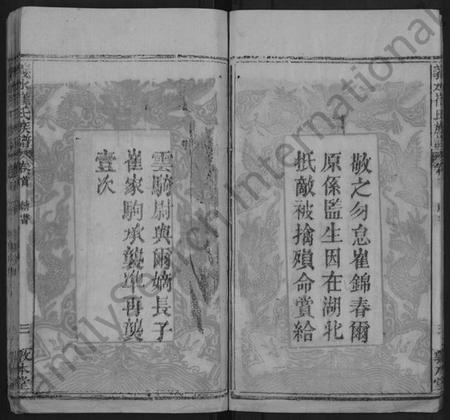 敬之勿怠崔錦春爾
原係監生因在湖北
抵敵被擒殞命賞給
雲騎尉與爾嫡長子
崔家駒承襲準再襲
壹次
氏族譜
卷首
三
敦本堂
FamilySearch International